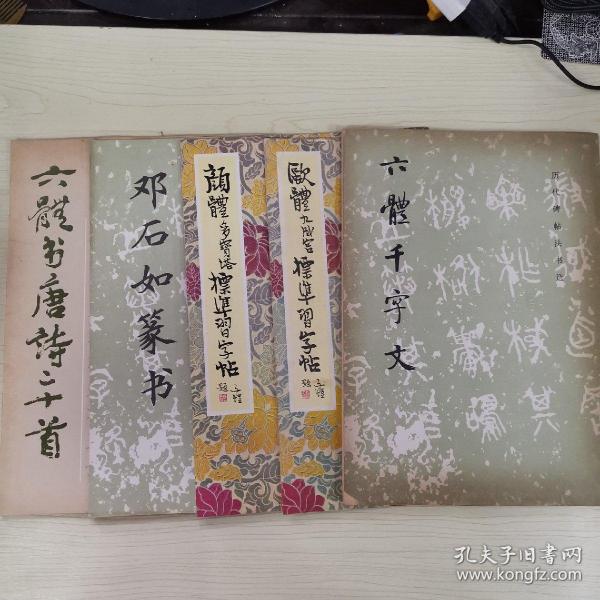 六體书唐詩二十首
邓石如篆书
顏體多寶塔標準習字帖
歐體九成宮標準習字帖
六體千字文
历代碑帖法书选
孔夫子旧书网
www.kongfz.com